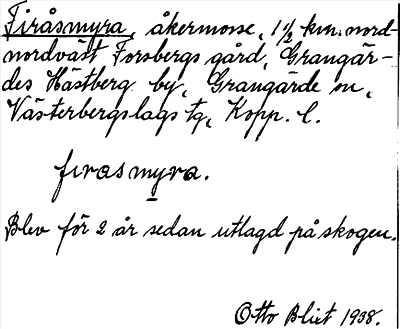 Firåsmyra, åkermosse, 1 1/2 km. nord-
nordväst Forsbergs gård, Grangär-
des Hästberg by, Grangärde sn,
Västerbergslags tg, Kopp. l.
firasmyra.
Blev för 2 år sedan utlagd på skogen.
Otto Blixt 1938.